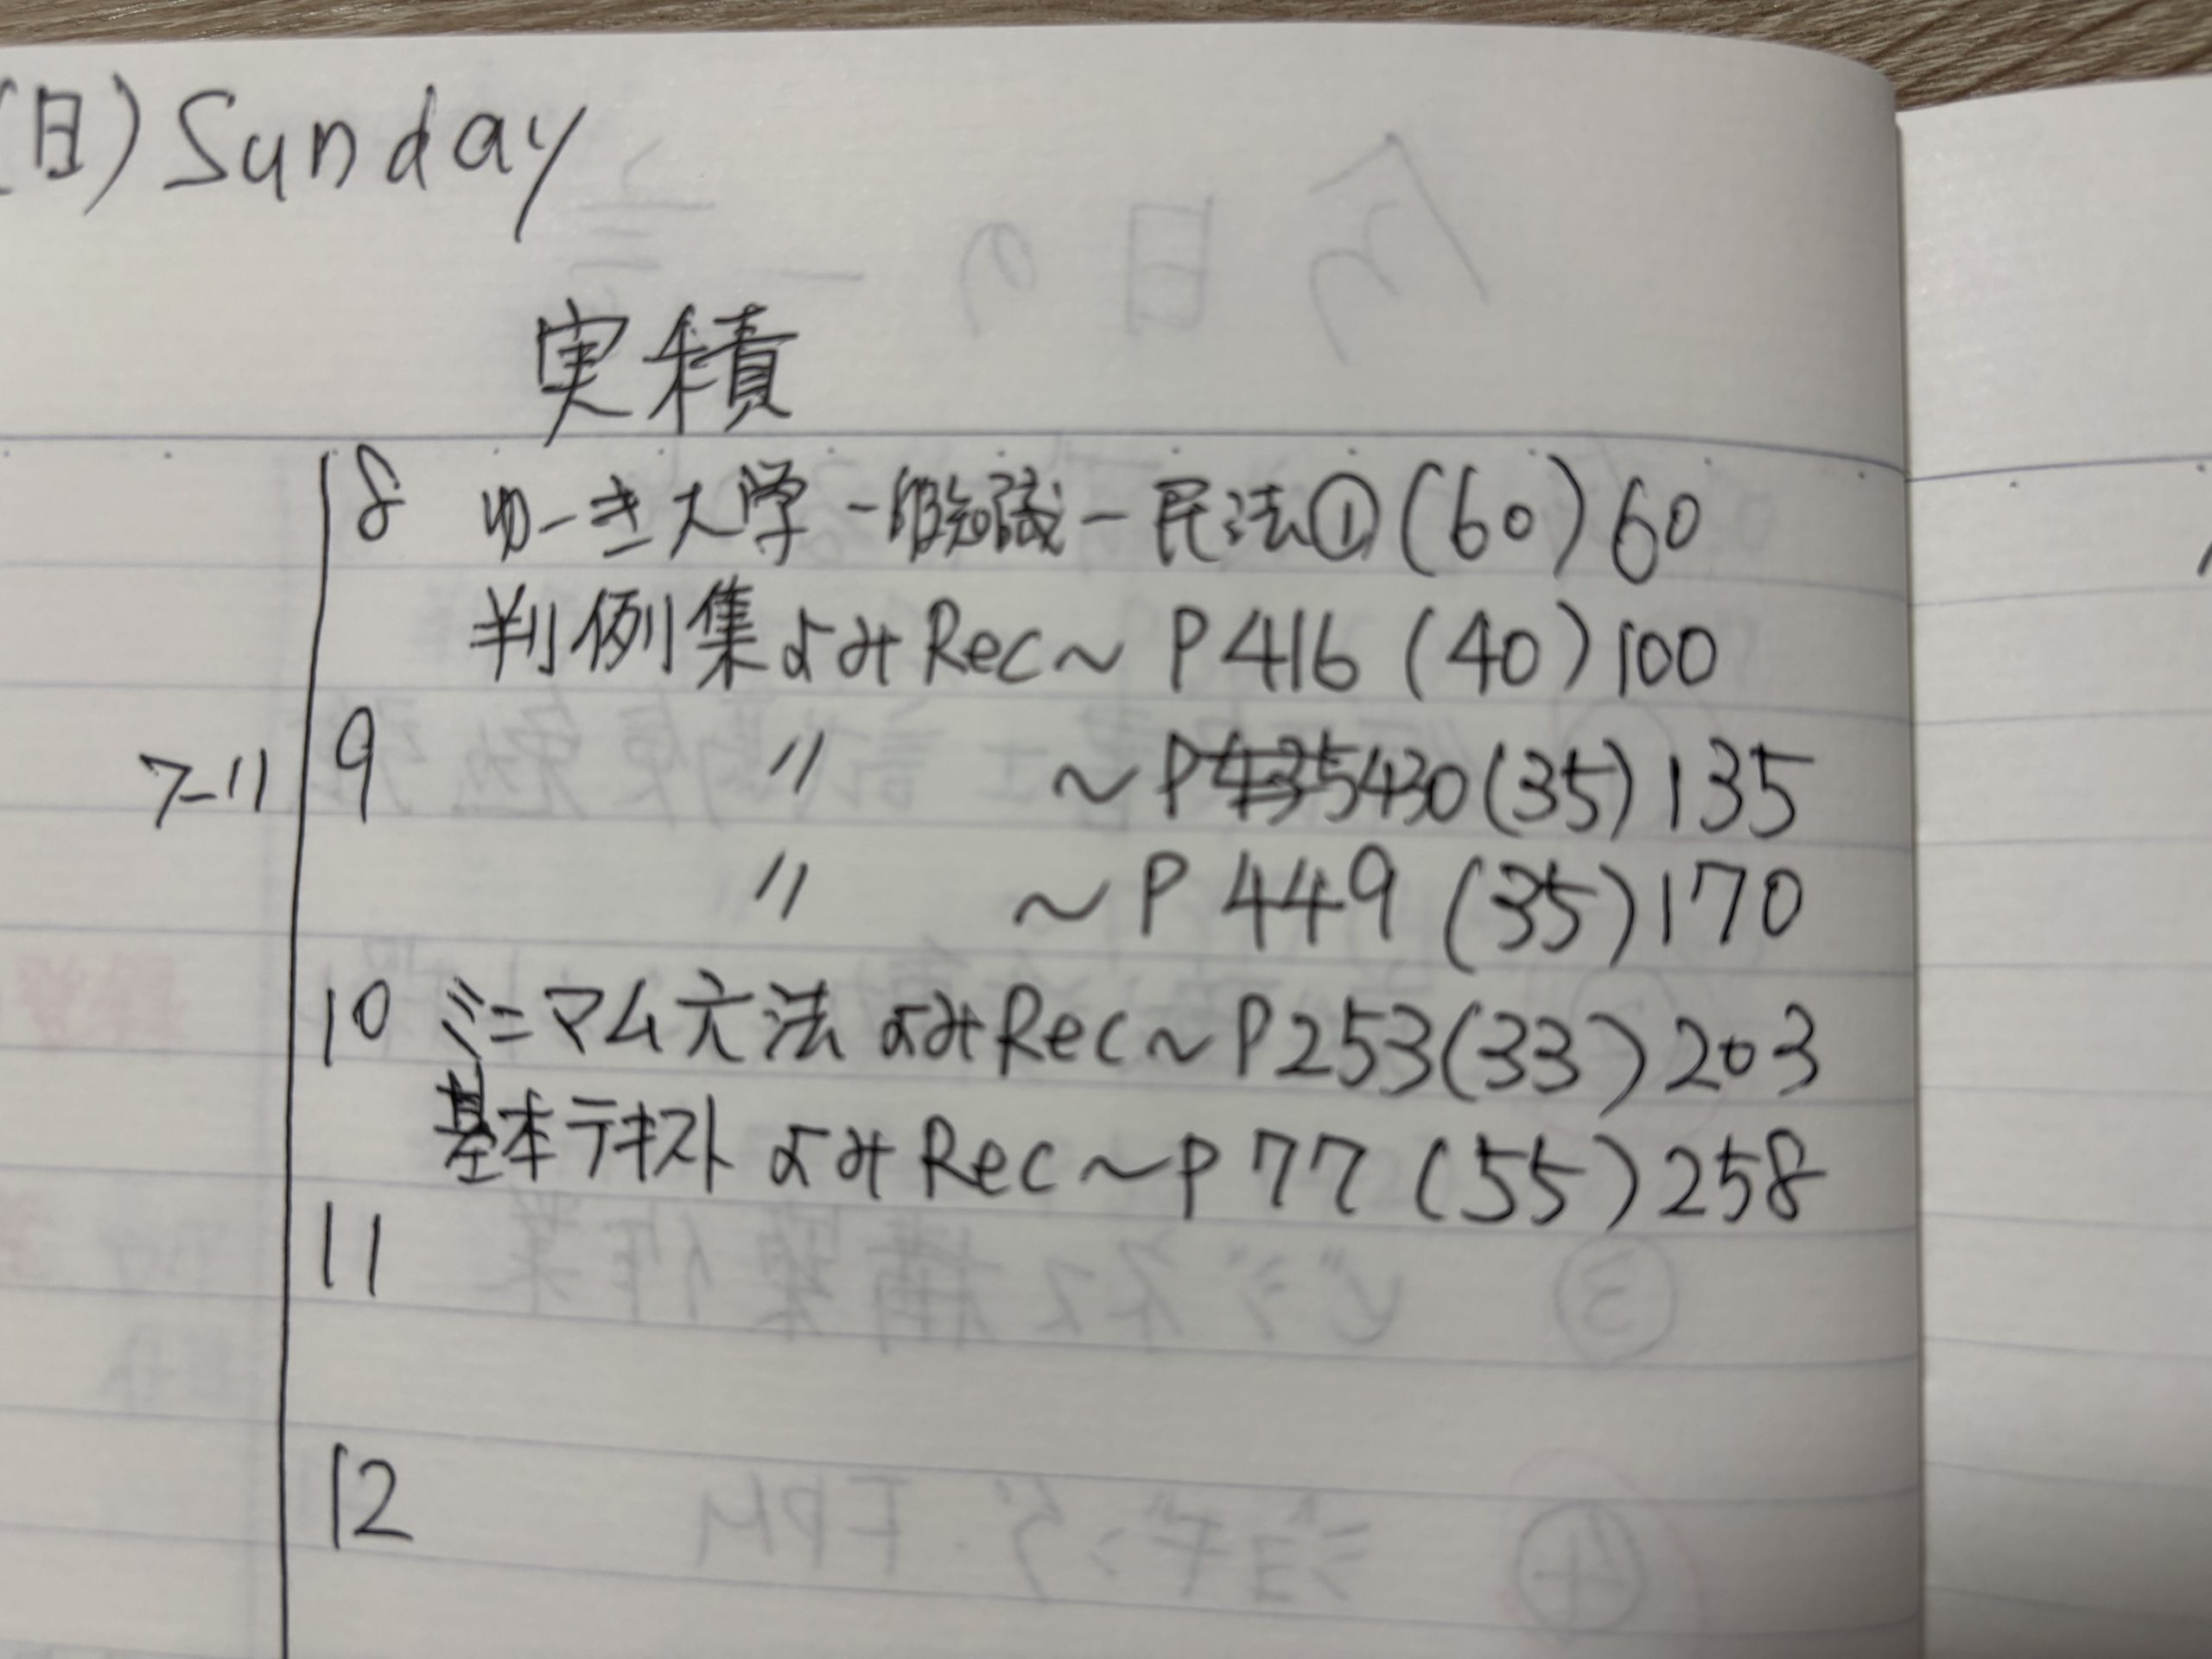 (日) Sunday
実積
8 ゆーき大学 一般知識-民法① (60) 60
判例集よみRec~ P416 (40) 100
7-11 9 〃 ~P435430 (35) 135
〃 ~P 449 (35) 170
10 ミニマム六法 よみRec~P253(33) 203
基本テキスト よみRec~P77 (55) 258
11
12